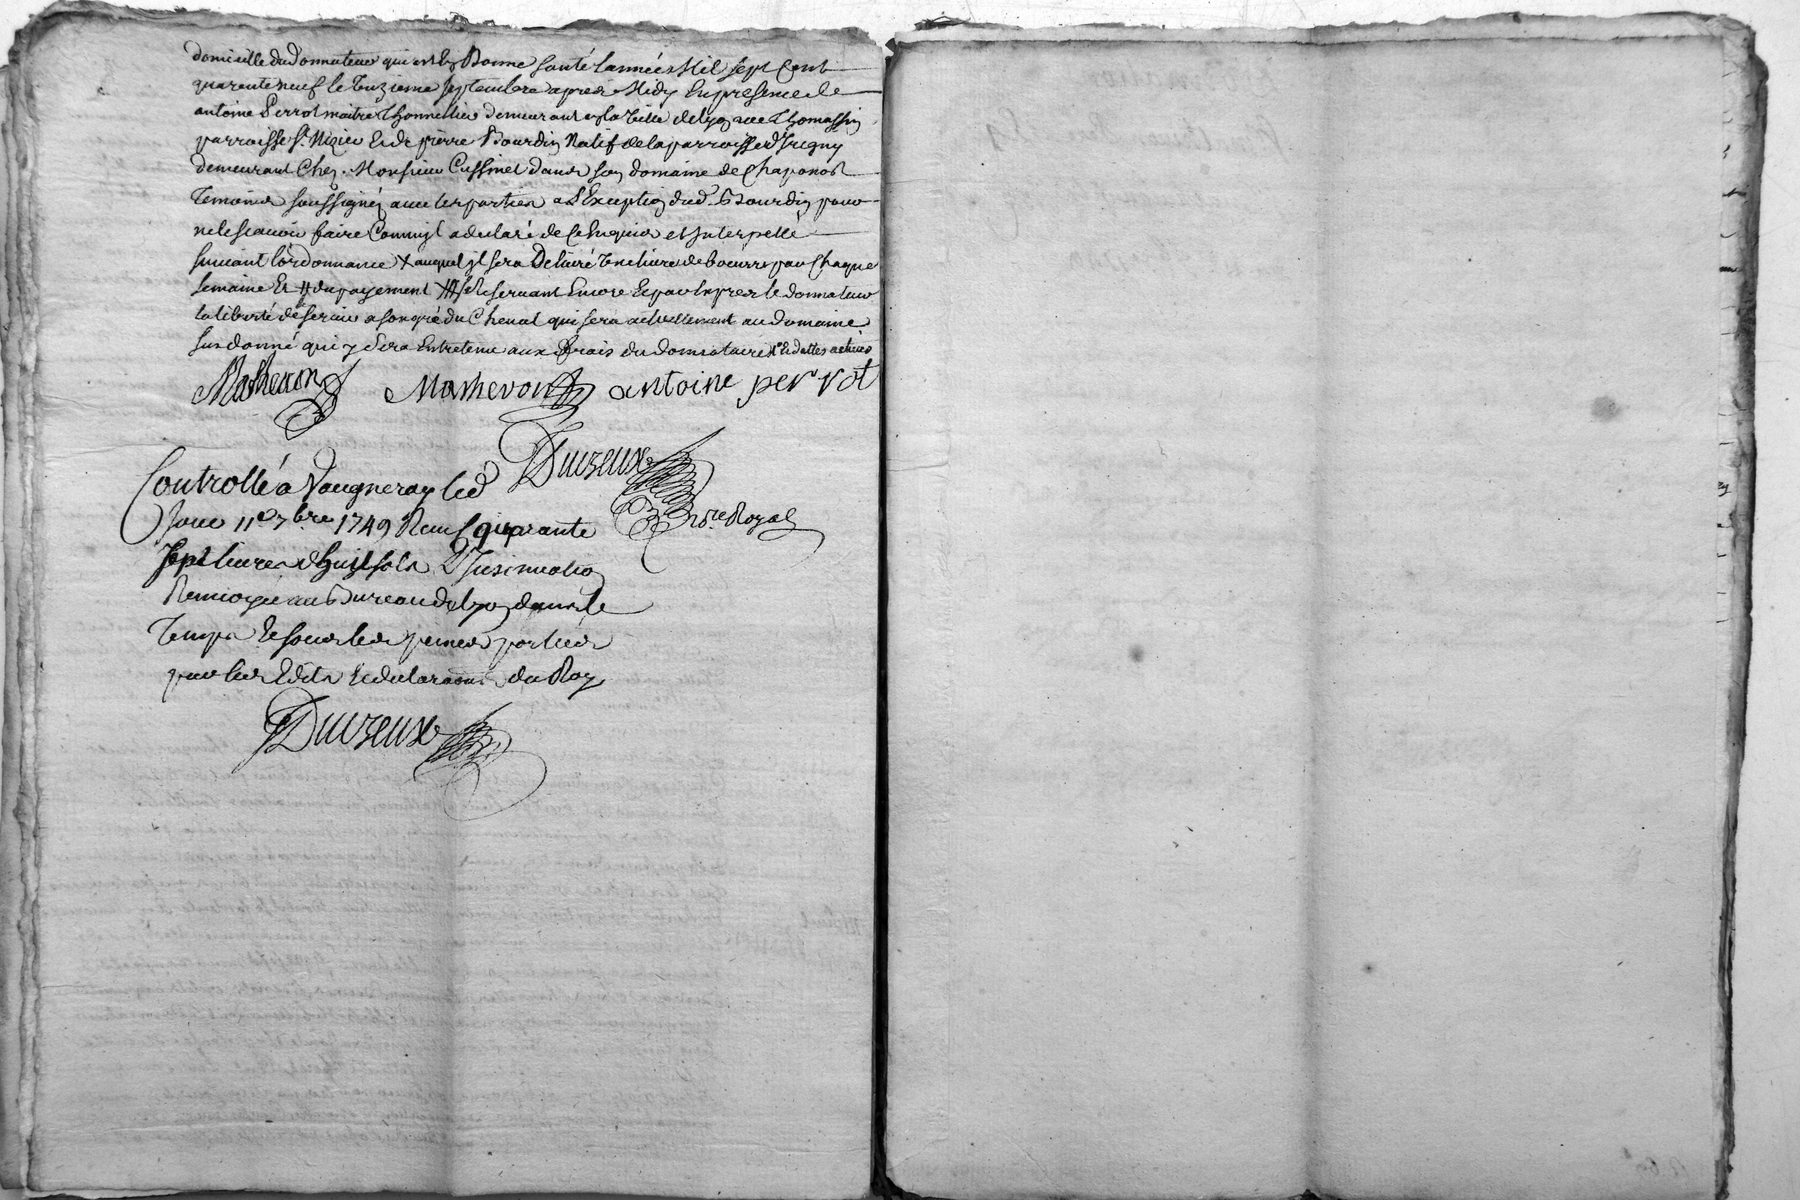 domicille du donnateur qui est en Bonne santé L'année Mil sept Cent
quarante neuf le Onzieme septembre apres Midy En presence de
antoine Perrot maitre thonnellier demeurant en la Ville de Lyon rue thomassin
parroisse St. Nizier et de pierre Bourdin Natif de la parroisse d'Irigny
demeurant Chez Monsieur Cussinet dans son domaine de Chaponost
Temoins soussignéz avec les parties a L'Exception dud. Bourdin pour
ne le scavoir faire Comm'il a declaré de Ce Enquis et Interpellé
suivant l'ordonnance X auquel jl sera Delivré une livre de beurre par Chaque
semaine Et # du payement ### se Reservant Encore Et par Exprez le donnateur
la liberté de se servir a son gré du Cheval qui sera actuellement au domaine
sus donné qui y sera Entretenu aux frais du donnataire Et dattes actives
Mathevon Mathevon antoine perrot
Duvzeux
Nore Royal
Controllé a Vaugneray led
Jour 11e 7bre 1749 Reçu quarante
sept livres huit sols L'Insinuation
Renvoyée au Bureau de Lyon dans le
Temps Et sous les peines portées
par les Edits Et declaraons du Roy
Duvzeux